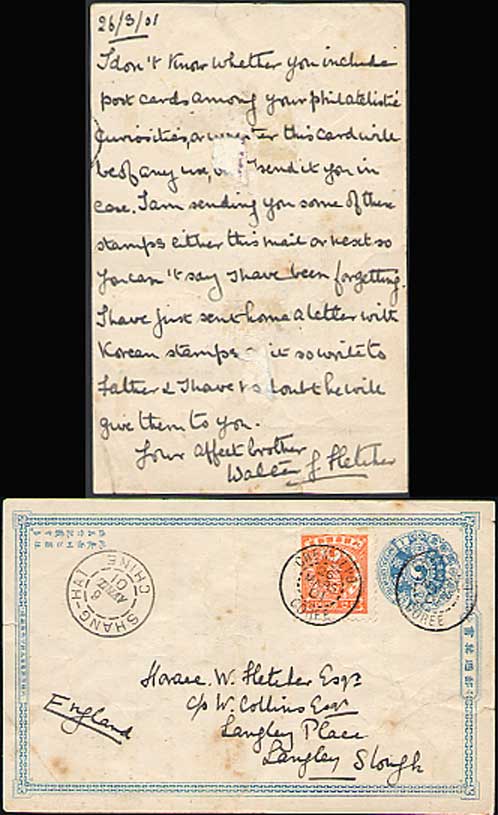 26/3/01
I don't know whether you include
post cards among your philatelistic
curiosities, or whether this card will
be of any use, but I send it you in
case. I am sending you some of these
stamps either this mail or next so
you can't say I have been forgetting.
I have just sent home a letter with
Korean stamps it so write to
Father & I have no doubt he will
give them to you.
Your affect brother
Walter J Fletcher
SHANG-HAI
CHINE
CHEMULPO
COREE
COREE
Horace. W. Fletcher Esqr.
c/o W. Collins Esqr
Langley Place
Langley Slough
England